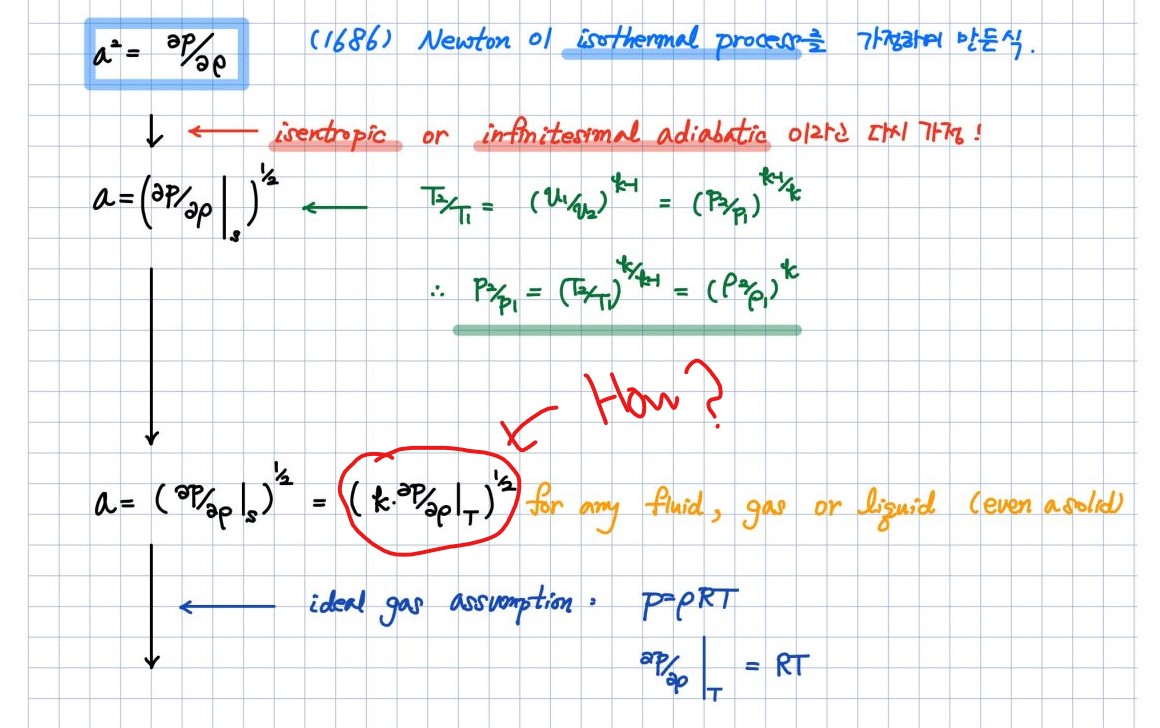 a² = ∂P/∂ρ (1686) Newton 이 isothermal process를 가정하여 만든식.
↓ ← isentropic or infinitesimal adiabatic 이라고 다시 가정!
a = (∂P/∂ρ|s)^½ ← T₂/T₁ = (v₁/v₂)^k-1 = (P₂/P₁)^k-1/k
∴ P₂/P₁ = (T₂/T₁)^k/k-1 = (ρ₂/ρ₁)^k
How?
a = (∂P/∂ρ|s)^½ = (k·∂P/∂ρ|T)^½ for any fluid, gas or liquid (even a solid)
← ideal gas assumption : P=ρRT
∂P/∂ρ|T = RT